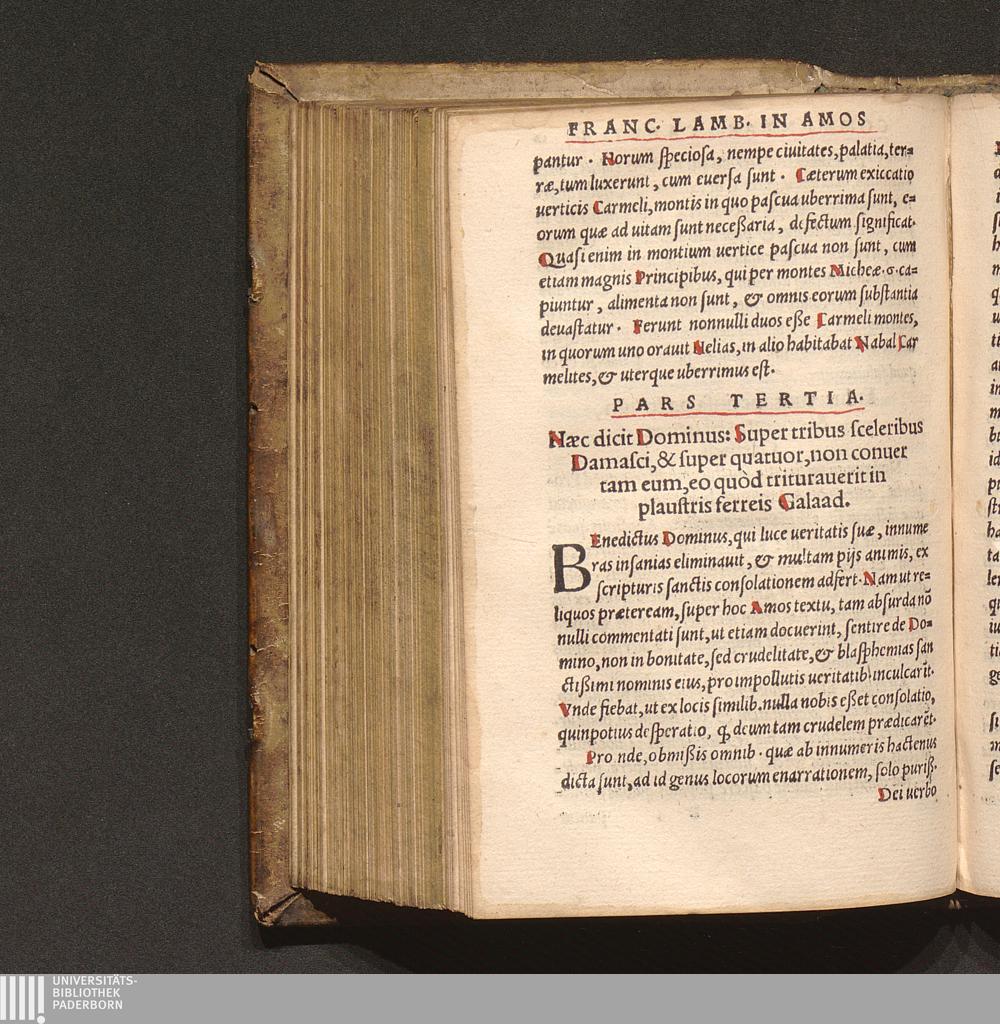 FRANC. LAMB. IN AMOS
pantur. Horum ſpecioſa, nempe ciuitates, palatia, ter=
ræ, tum luxerunt, cum euerſa ſunt. Cæterum exiccatio
uerticis Carmeli, montis in quo paſcua uberrima ſunt, e=
orum quæ ad uitam ſunt neceßaria, defectum ſignificat.
Quaſi enim in montium uertice paſcua non ſunt, cum
etiam magnis Principibus, qui per montes Micheæ.6.ca=
piuntur, alimenta non ſunt, & omnis eorum ſubſtantia
deuaſtatur. Ferunt nonnulli duos eße Carmeli montes,
in quorum uno orauit Helias, in alio habitabat Nabal Car
melites, & uterque uberrimus eſt.
PARS TERTIA.
Hæc dicit Dominus: Super tribus ſceleribus
Damaſci, & ſuper quatuor, non conuer
tam eum, eo quòd triturauerit in
plauſtris ferreis Galaad.
BEnedictus Dominus, qui luce ueritatis ſuæ, innume
ras inſanias eliminauit, & multam pijs animis, ex
ſcripturis ſanctis conſolationem adfert. Nam ut re=
liquos præteream, ſuper hoc Amos textu, tam abſurda nō
nulli commentati ſunt, ut etiam docuerint, ſentire de Do=
mino, non in bonitate, ſed crudelitate, & blaſphemias ſan
ctißimi nominis eius, pro impollutis ueritatib. inculcarīt.
Vnde fiebat, ut ex locis ſimilib. nulla nobis eßet conſolatio,
quin potius deſperatio, ꝙ deum tam crudelem prædicarēt.
Proinde, obmißis omnib. quæ ab innumeris hactenus
dicta ſunt, ad id genus locorum enarrationem, ſolo puriß.
Dei uerbo
UNIVERSITÄTS-
BIBLIOTHEK
PADERBORN